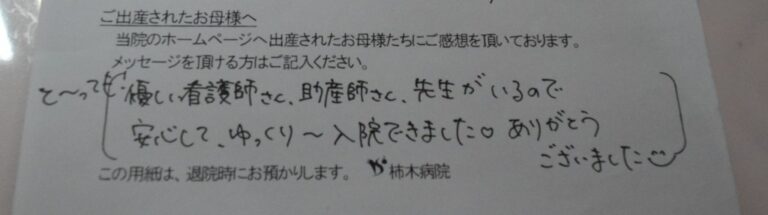 ご出産されたお母様へ
当院のホームページへ出産されたお母様たちにご感想を頂いております。
メッセージを頂ける方はご記入ください。
と〜っても優しい看護師さん、助産師さん、先生がいるので
安心して、ゆっくり〜入院できました♡ ありがとう
ございました
この用紙は、退院時にお預かりします。 柿木病院